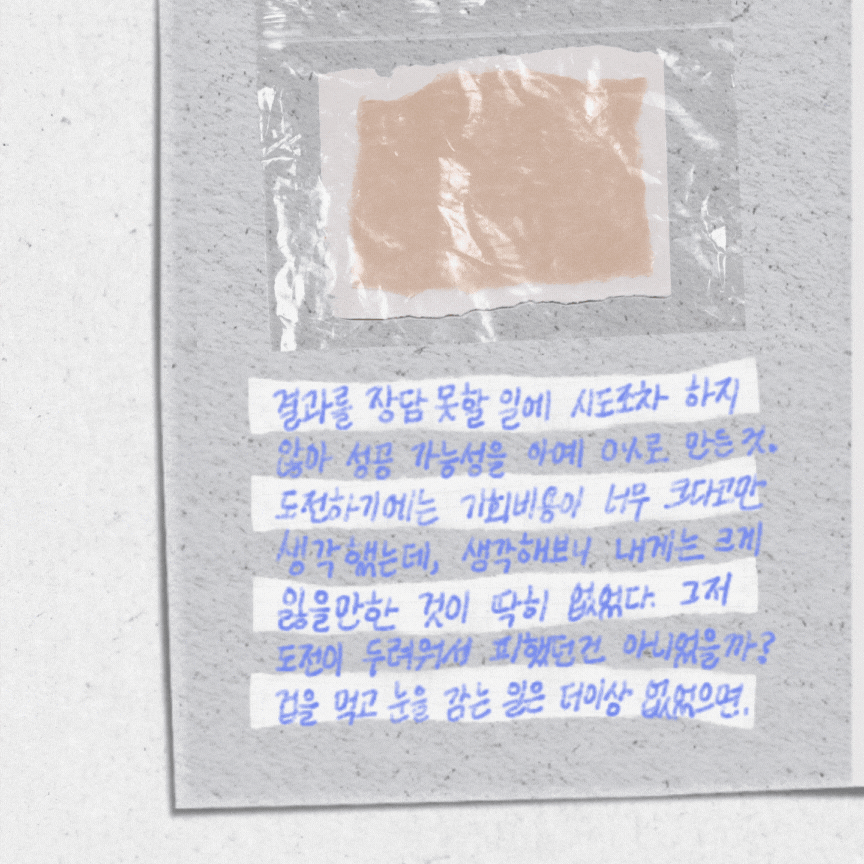 결과를 장담 못할 일에 시도조차 하지
않아 성공 가능성을 아예 0%로 만든 것.
도전하기에는 기회비용이 너무 크다고만
생각했는데, 생각해보니 내게는 크게
잃을만한 것이 딱히 없었다. 그저
도전이 두려워서 피했던건 아니었을까?
겁을 먹고 눈을 감는 일은 더이상 없었으면.